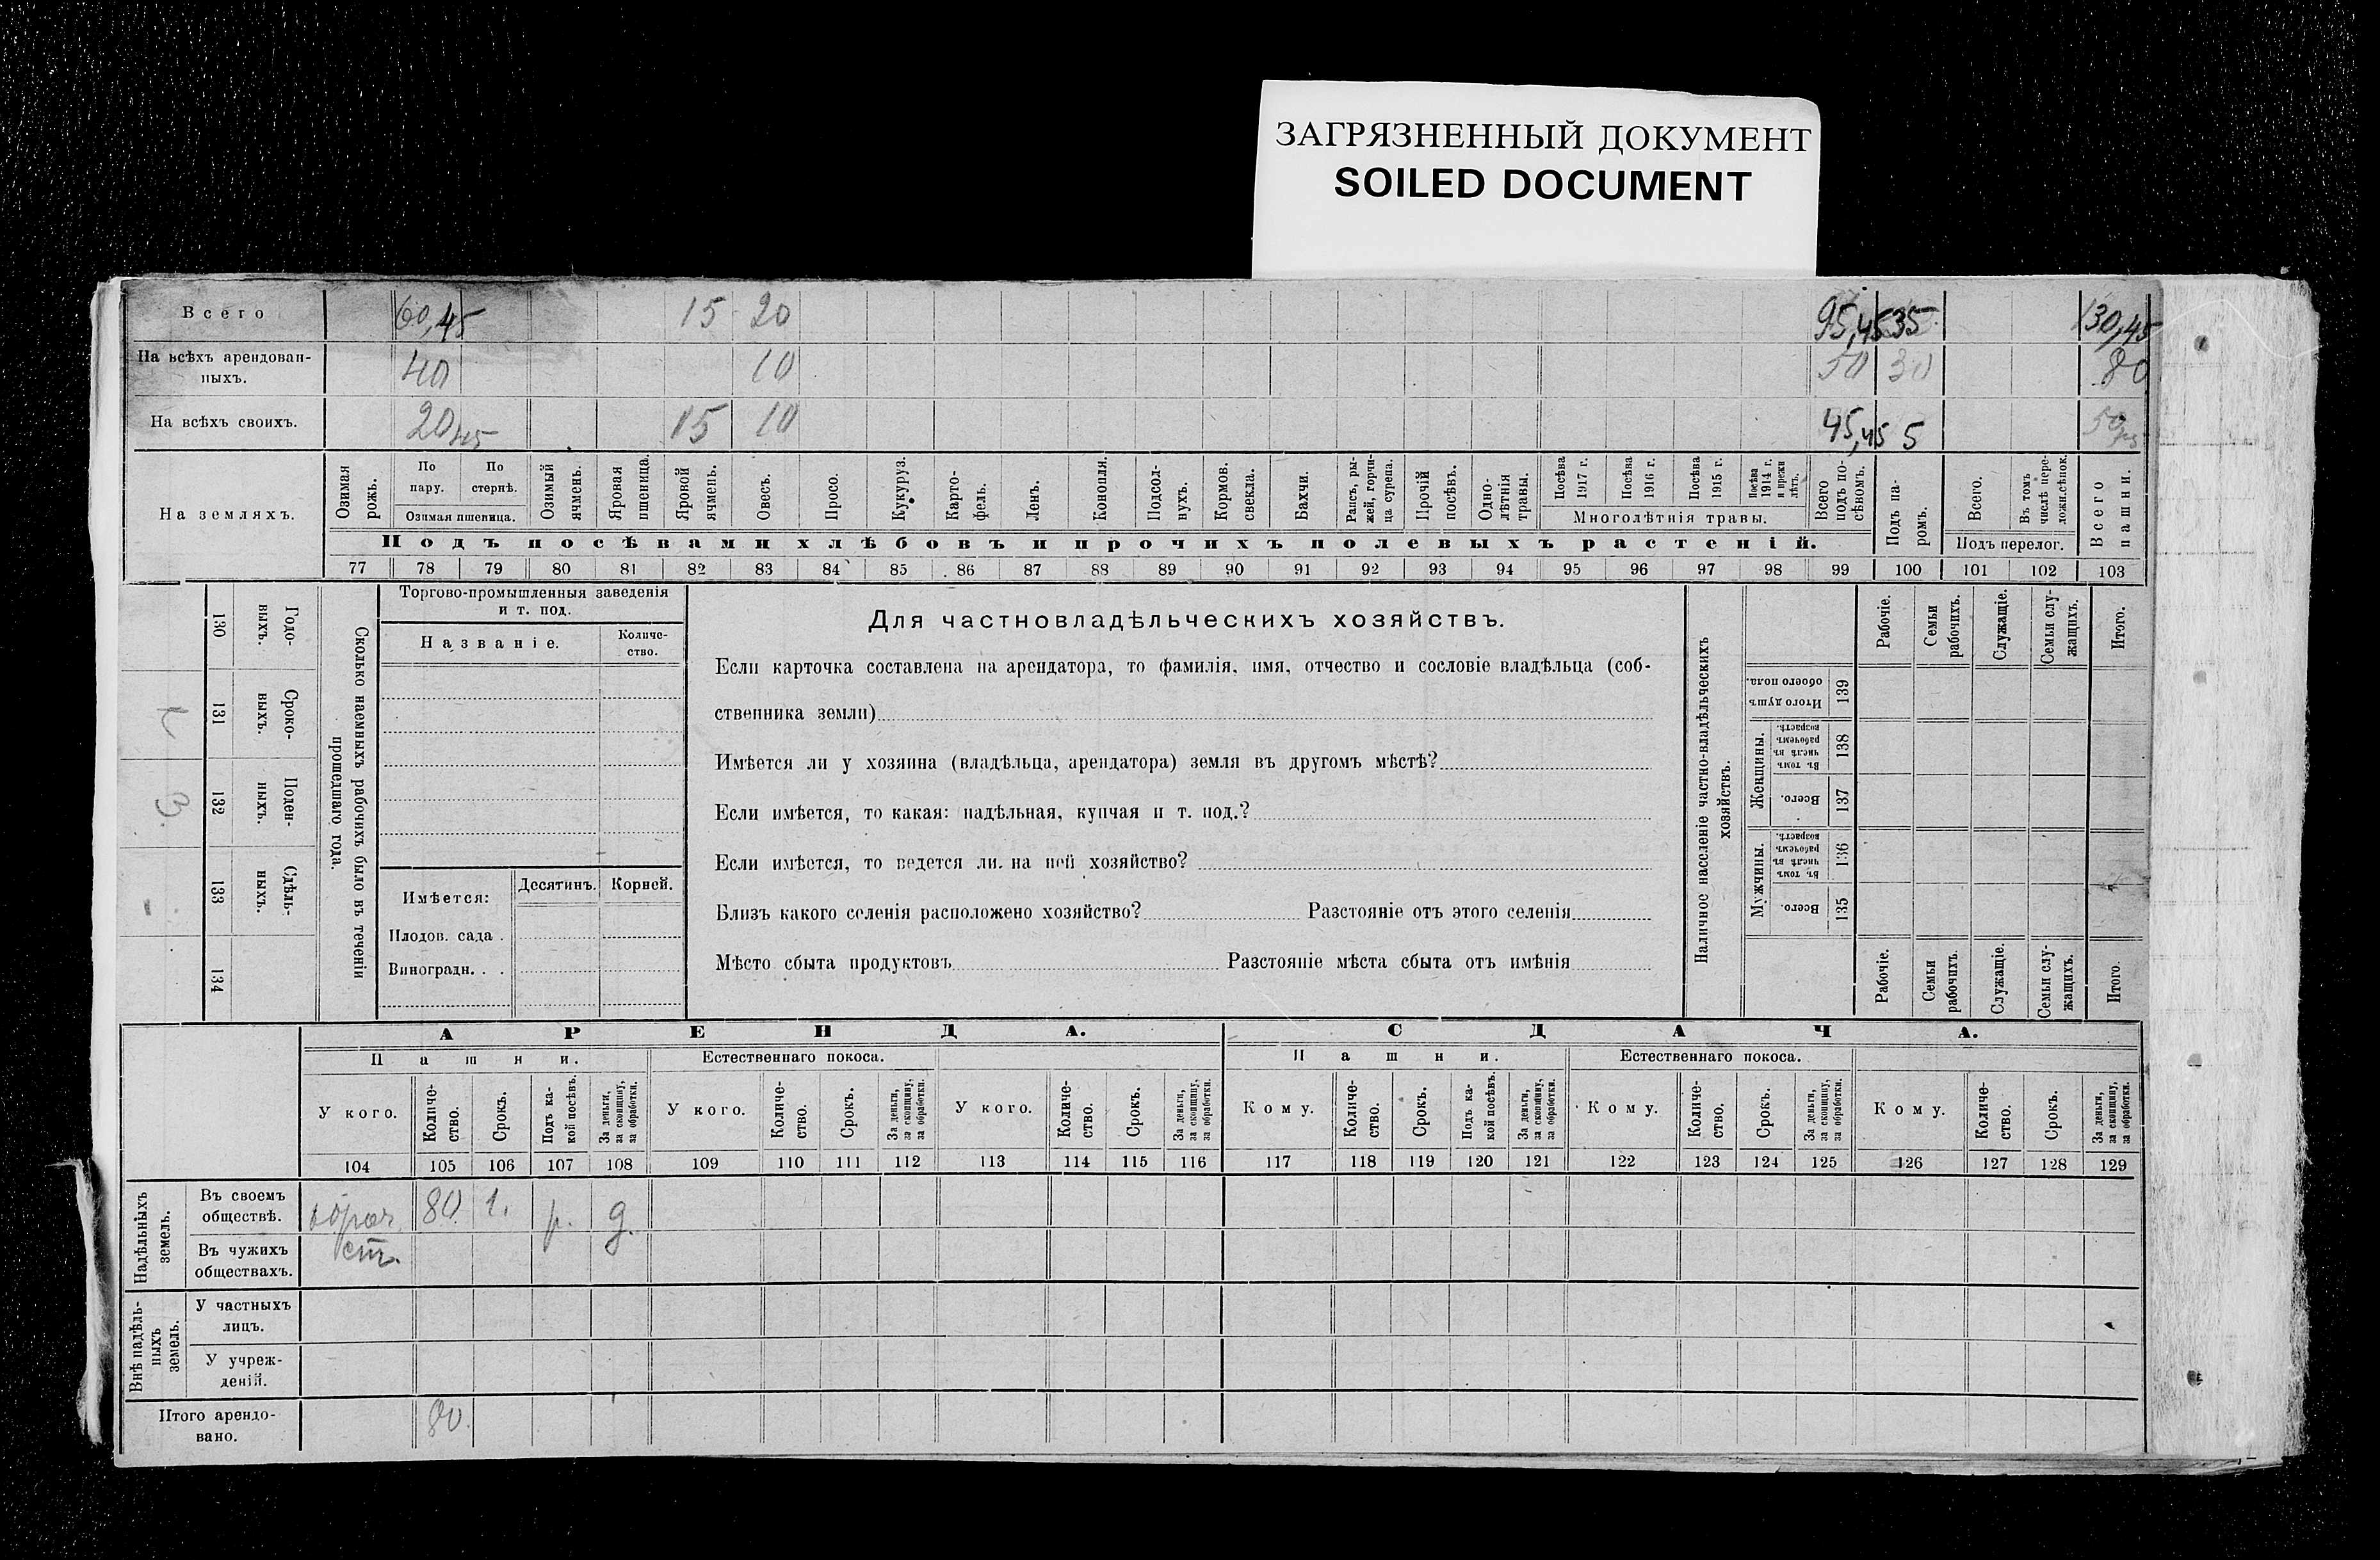 ЗАГРЯЗНЕННЫЙ ДОКУМЕНТ
SOILED DOCUMENT
Всего 60,45 15 20 95,45 35 130,45
На всѣхъ арендован-
ныхъ. 40 10 50 30 80
На всѣхъ своихъ. 20 45 15 10 45,45 5 50
На земляхъ.
Озимая рожь.
По пару.
По стернѣ.
Озимая пшеница.
Озимый ячмень.
Яровая пшеница.
Яровой ячмень.
Овесъ.
Просо.
Кукуруз.
Карто-
фель.
Ленъ.
Конопля.
Подсол-
нухъ.
Кормов.
свекла.
Бахчи.
Рапсъ, ры-
жей, горчи-
ца сурепа.
Прочій посѣвъ.
Одно-
лѣтнія травы.
Посѣва 1917 г.
Посѣва 1916 г.
Посѣва 1915 г.
Посѣва 1914 г. и прежн лѣтъ.
Многолѣтнія травы.
Всего подъ по-
сѣвомъ.
Подъ па-
ромъ.
Всего.
Въ томъ числѣ пере-
ложн.сѣнок.
Подъ перелог.
Всего пашни.
Подъ посѣвами хлѣбовъ и прочихъ полевыхъ растеній.
77 78 79 80 81 82 83 84 85 86 87 88 89 90 91 92 93 94 95 96 97 98 99 100 101 102 103
130 131 132 133 134
Годо-
выхъ.
Сроко-
выхъ.
Поден-
ныхъ.
Сдѣль-
ныхъ.
Сколько наемныхъ рабочихъ было въ теченіи
прошедшаго года.
Торгово-промышленныя заведенія
и т. под.
Названіе.
Количе-
ство.
Имѣется:
Десятинъ.
Корней.
Плодов. сада .
Виноградн. . .
Для частновладѣльческихъ хозяйствъ.
Если карточка составлена на арендатора, то фамилія, имя, отчество и сословіе владѣльца (соб-
ственника земли)
Имѣется ли у хозяина (владѣльца, арендатора) земля въ другомъ мѣстѣ?
Если имѣется, то какая: надѣльная, купчая и т. под.?
Если имѣется, то ведется ли на ней хозяйство?
Близъ какого селенія расположено хозяйство? Разстояніе отъ этого селенія
Мѣсто сбыта продуктовъ Разстояніе мѣста сбыта отъ имѣнія
Наличное населеніе частно-владѣльческихъ
хозяйствъ.
Рабочіе.
Семьи рабочихъ.
Служащіе.
Семьи слу-
жащихъ.
Итого.
Итого душъ обоего пола. 139
Женщины.
Въ томъ числѣ въ рабочемъ возрастѣ. 138
Всего. 137
Мужчины.
Въ томъ числѣ въ рабочемъ возрастѣ. 136
Всего. 135
Рабочіе.
Семьи рабочихъ.
Служащіе.
Семьи слу-
жащихъ.
Итого.
АРЕНДА. СДАЧА.
Пашни. Естественнаго покоса. Пашни. Естественнаго покоса.
У кого.
Количе-
ство.
Срокъ.
Подъ ка-
кой посѣвъ.
За деньги,
за скопщину,
за обработки.
У кого.
Количе-
ство.
Срокъ.
За деньги,
за скопщину,
за обработки.
У кого.
Количе-
ство.
Срокъ.
За деньги,
за скопщину,
за обработки.
Кому.
Количе-
ство.
Срокъ.
Подъ ка-
кой посѣвъ.
За деньги,
за скопщину,
за обработки.
Кому.
Количе-
ство.
Срокъ.
За деньги,
за скопщину,
за обработки.
Кому.
Количе-
ство.
Срокъ.
За деньги,
за скопщину,
за обработки.
104 105 106 107 108 109 110 111 112 113 114 115 116 117 118 119 120 121 122 123 124 125 126 127 128 129
Надѣльныхъ
земель.
Въ своемъ
обществѣ. 80 1. р. д.
Въ чужихъ
обществахъ. ст.
Внѣ надѣль-
ныхъ
земель.
У частныхъ
лицъ.
У учреж-
деній.
Итого арендо-
вано. 80.